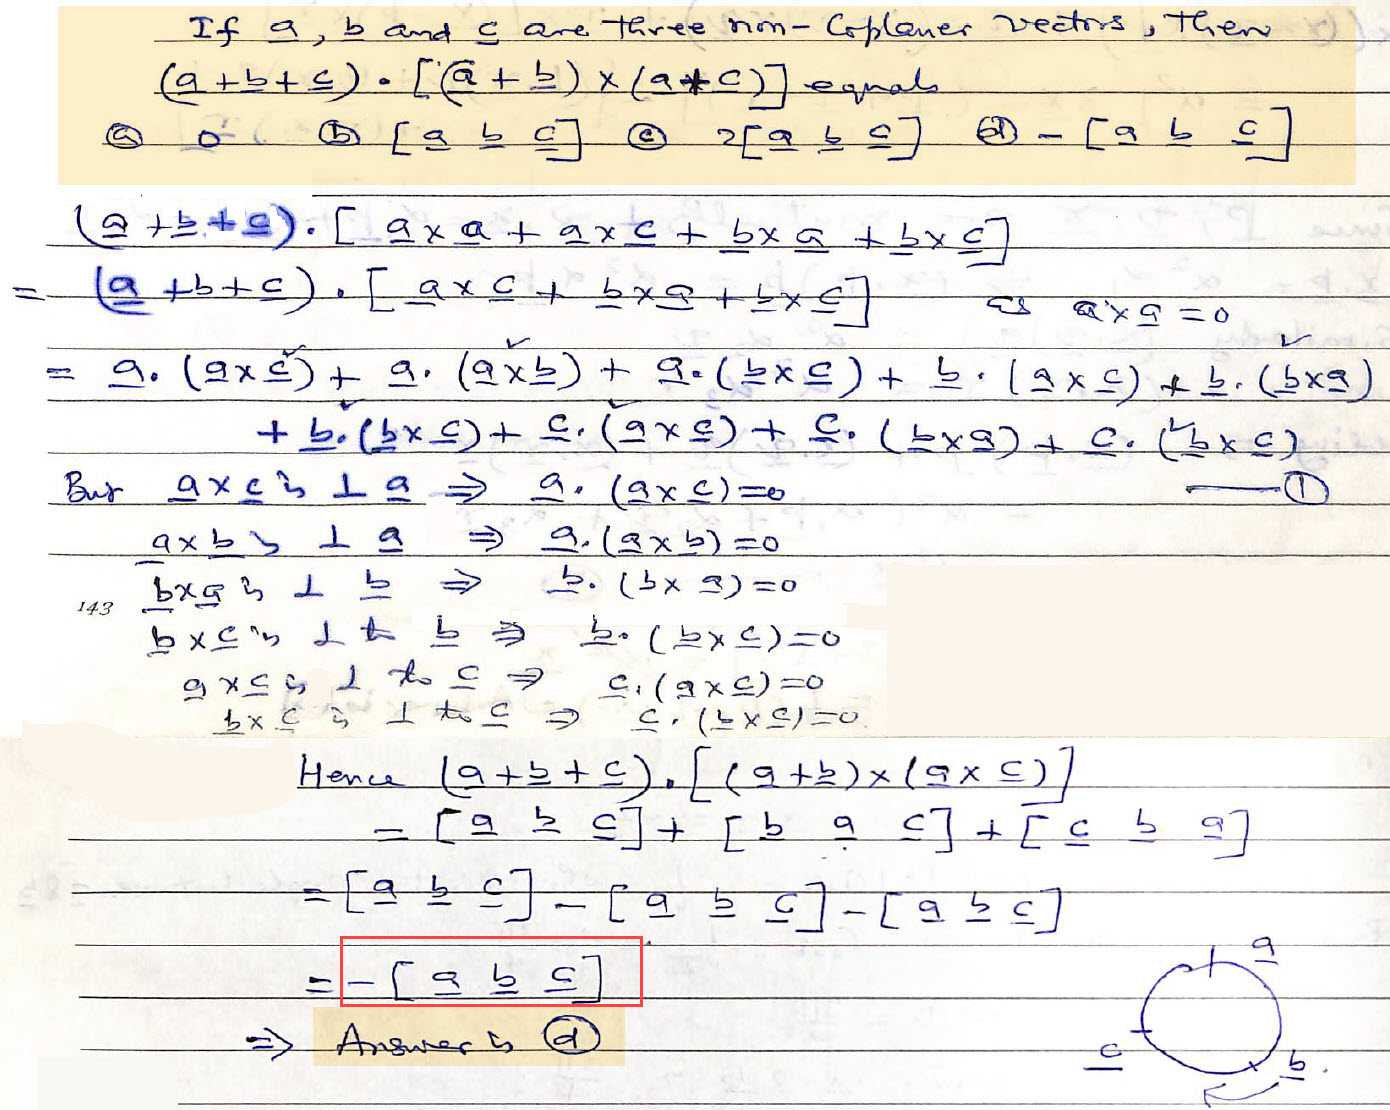 If a, b and c are three non-Coplaner vectors, then
(a+b+c) . [(a+b) × (a+c)] equals
(a) 0 (b) [a b c] (c) 2[a b c] (d) -[a b c]
(a+b+c) . [a×a + a×c + b×a + b×c]
= (a+b+c) . [a×c + b×a + b×c] as a×a = 0
= a. (a×c) + a. (a×b) + a. (b×c) + b. (a×c) + b. (b×a)
+ b. (b×c) + c. (a×c) + c. (b×a) + c. (b×c)
—— (1)
But a×c is ⊥ a ⇒ a. (a×c) = 0
a×b is ⊥ a ⇒ a. (a×b) = 0
b×a is ⊥ b ⇒ b. (b×a) = 0
143
b×c is ⊥ to b ⇒ b. (b×c) = 0
a×c is ⊥ to c ⇒ c. (a×c) = 0
b×c is ⊥ to c ⇒ c. (b×c) = 0
Hence (a+b+c) . [(a+b)×(a×c)]
= [a b c] + [b a c] + [c b a]
= [a b c] - [a b c] - [a b c]
= -[a b c]
⇒ Answer is (d)
a
c b